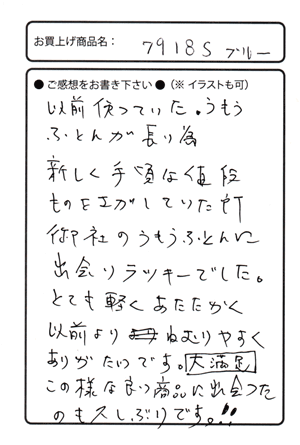 お買上げ商品名： 7918S ブルー
●ご感想をお書き下さい●（※イラストも可）
以前使っていた。うもう
ふとんが長り為
新しく手頃な値段
ものをエがしていた所
御社のうもうふとんに
出会いラッキーでした。
とても軽くあたたかく
以前よりねむりやすく
ありがたいです。大満足
この様な良い商品に出会つた
のも久しぶりです。!!